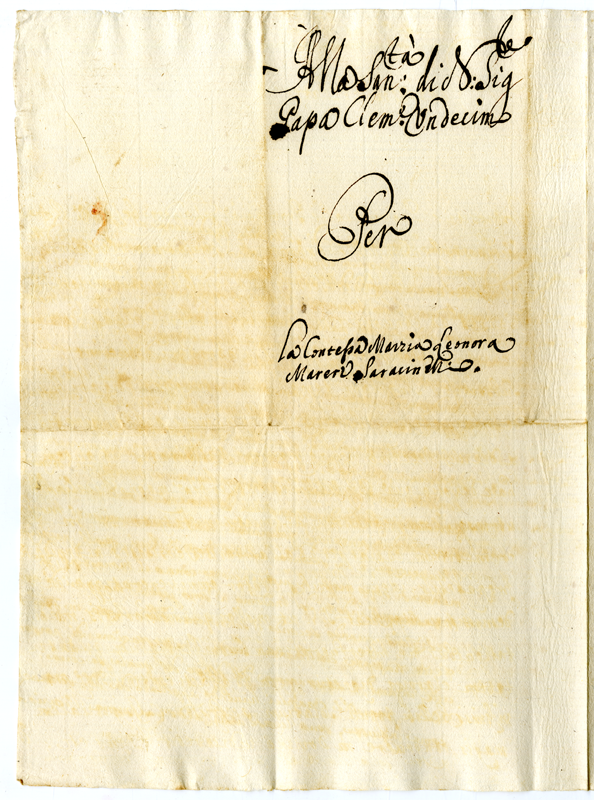 Alla San:tà di N: Sig:re
Papa Clem:e Undecimo
Per
La Contessa Marzia Leonora
Mareri Saracin